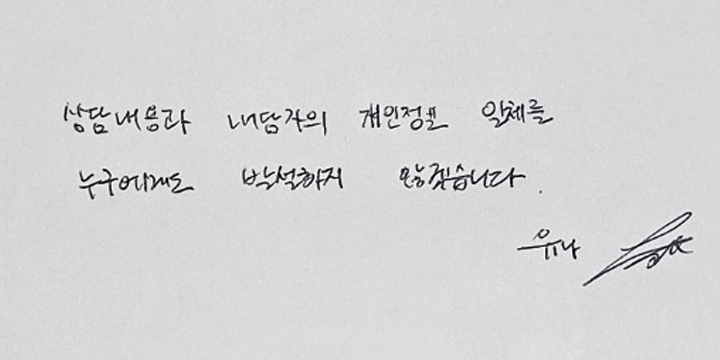 상담내용과 내담자의 개인정보 일체를
누구에게도 발설하지 않겠습니다.
유나